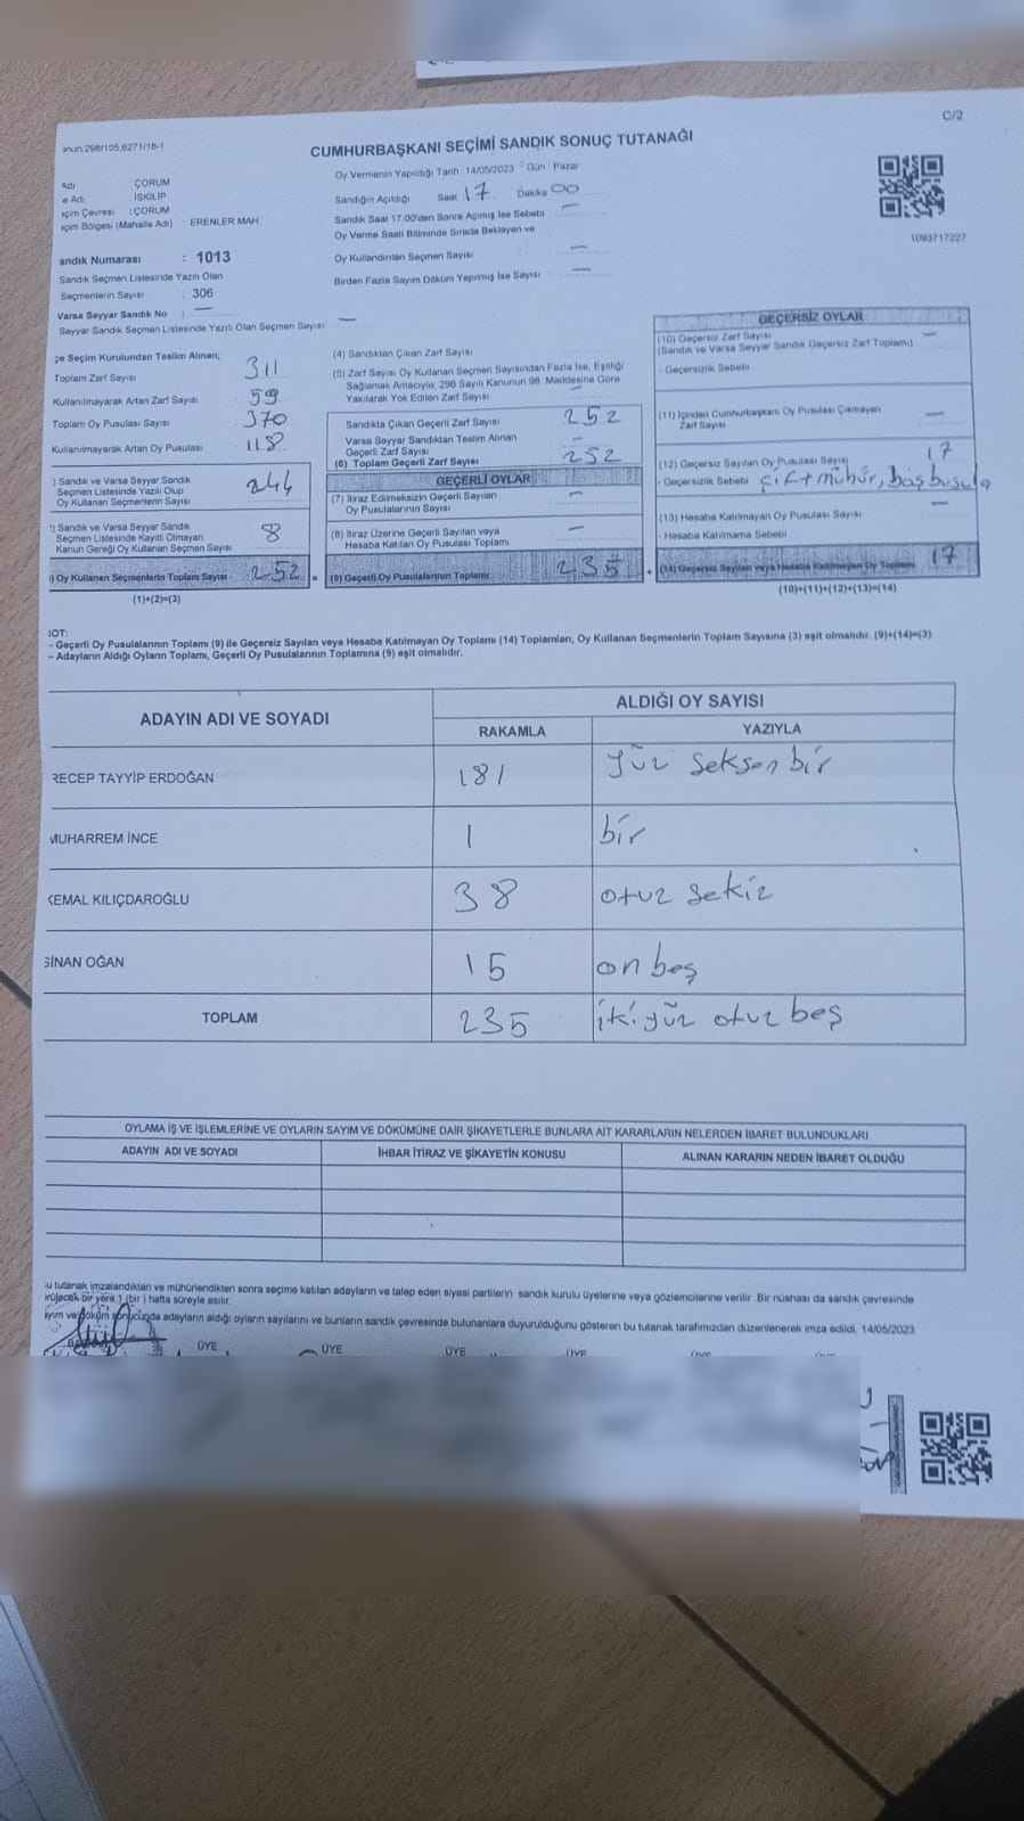 C/2
CUMHURBAŞKANI SEÇİMİ SANDIK SONUÇ TUTANAĞI
Oy Vermenin Yapıldığı Tarih :14/05/2023 Gün : Pazar
ÇORUM
İSKİLİP
:ÇORUM
ERENLER MAH.
Sandığın Açıldığı Saat 17 Dakika 00
Sandık Saat 17:00'den Sonra Açmış İse Sebebi —
Oy Verme Saati Bitiminde Sırada Bekleyen ve
Oy Kullandırılan Seçmen Sayısı —
Birden Fazla Sayım Döküm Yapılmış İse Sayısı —
1093717227
andık Numarası : 1013
Sandık Seçmen Listesinde Yazılı Olan
Seçmenlerin Sayısı : 306
Varsa Seyyar Sandık No : —
Seyyar Sandık Seçmen Listesinde Yazılı Olan Seçmen Sayısı —
çe Seçim Kurulundan Teslim Alınan,
Toplam Zarf Sayısı 311
Kullanılmayarak Artan Zarf Sayısı 59
Toplam Oy Pusulası Sayısı 370
Kullanılmayarak Artan Oy Pusulası 118
) Sandık ve Varsa Seyyar Sandık
Seçmen Listesinde Yazılı Olup
Oy Kullanan Seçmenlerin Sayısı 244
Sandık ve Varsa Seyyar Sandık
Seçmen Listesinde Kayıtlı Olmayan
Kanun Gereği Oy Kullanan Seçmen Sayısı 8
) Oy Kullanan Seçmenlerin Toplam Sayısı 252
(1)+(2)=(3)
(4) Sandıktan Çıkan Zarf Sayısı
(5) Zarf Sayısı Oy Kullanan Seçmen Sayısından Fazla İse, Eşitliği
Sağlamak Amacıyla, 298 Sayılı Kanunun 98. Maddesine Göre
Yakılarak Yok Edilen Zarf Sayısı —
Sandıkta Çıkan Geçerli Zarf Sayısı 252
Varsa Seyyar Sandıktan Teslim Alınan
Geçerli Zarf Sayısı —
(6) Toplam Geçerli Zarf Sayısı 252
GEÇERLİ OYLAR
(7) İtiraz Edilmeksizin Geçerli Sayılan
Oy Pusulalarının Sayısı —
(8) İtiraz Üzerine Geçerli Sayılan veya
Hesaba Katılan Oy Pusulası Toplamı —
(9) Geçerli Oy Pusulalarının Toplamı 235
GEÇERSİZ OYLAR
(10) Geçersiz Zarf Sayısı —
(Sandık ve Varsa Seyyar Sandık Geçersiz Zarf Toplamı)
- Geçersizlik Sebebi
(11) İçinden Cumhurbaşkanı Oy Pusulası Çıkmayan
Zarf Sayısı —
(12) Geçersiz Sayılan Oy Pusulası Sayısı 17
- Geçersizlik Sebebi çift mühür, boş pusula
(13) Hesaba Katılmayan Oy Pusulası Sayısı —
- Hesaba Katılmama Sebebi
(14) Geçersiz Sayılan veya Hesaba Katılmayan Oy Toplamı 17
(10)+(11)+(12)+(13)=(14)
NOT:
- Geçerli Oy Pusulalarının Toplamı (9) ile Geçersiz Sayılan veya Hesaba Katılmayan Oy Toplamı (14) Toplamları, Oy Kullanan Seçmenlerin Toplam Sayısına (3) eşit olmalıdır. (9)+(14)=(3)
- Adayların Aldığı Oyların Toplamı, Geçerli Oy Pusulalarının Toplamına (9) eşit olmalıdır.
ADAYIN ADI VE SOYADI
ALDIĞI OY SAYISI
RAKAMLA YAZIYLA
RECEP TAYYİP ERDOĞAN 181 yüz seksen bir
MUHARREM İNCE 1 bir
KEMAL KILIÇDAROĞLU 38 otuz sekiz
SİNAN OĞAN 15 on beş
TOPLAM 235 iki yüz otuz beş
OYLAMA İŞ VE İŞLEMLERİNE VE OYLARIN SAYIM VE DÖKÜMÜNE DAİR ŞİKAYETLERLE BUNLARA AİT KARARLARIN NELERDEN İBARET BULUNDUKLARI
ADAYIN ADI VE SOYADI İHBAR İTİRAZ VE ŞİKAYETİN KONUSU ALINAN KARARIN NEDEN İBARET OLDUĞU
u tutanak imzalandıktan ve mühürlendikten sonra seçime katılan adayların ve talep eden siyasi partilerin sandık kurulu üyelerine veya gözlemcilerine verilir. Bir nüshası da sandık çevresinde
rülecek bir yere 1 (bir) hafta süreyle asılır.
ayım ve döküm sonucunda adayların aldığı oyların sayılarını ve bunların sandık çevresinde bulunanlara duyurulduğunu gösteren bu tutanak tarafımızdan düzenlenerek imza edildi. 14/05/2023
ÜYE ÜYE ÜYE